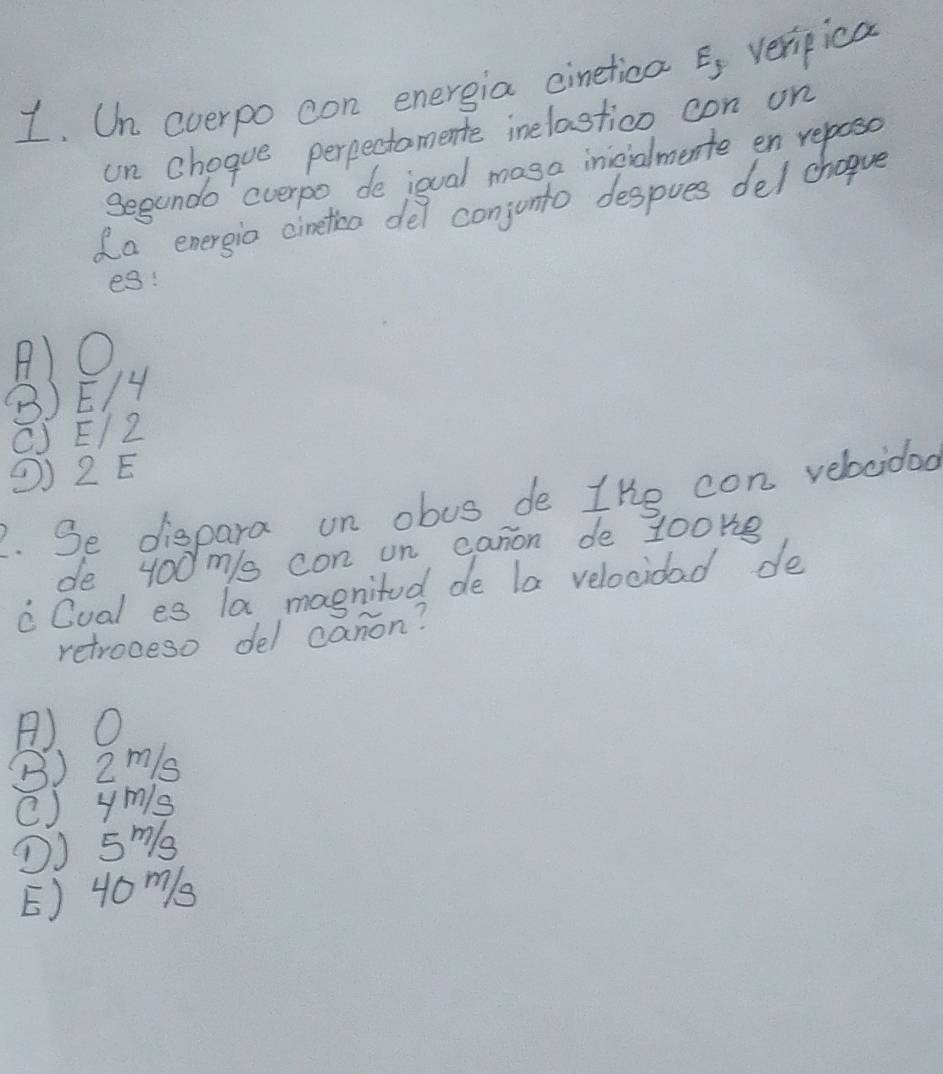 1. Un cuerpo con energia cinetica E, verifica
un choque perfectamente inelastico con un
segundo cuerpo de igual masa inicialmente en reposo
La energia cinetica del conjunto despues del choque
es:
A) 0
B) E/4
C) E/2
D) 2E
2. Se dispara un obus de 1Kg con velocidad
de 400 m/s con un cañon de 100Kg
¿Cual es la magnitud de la velocidad de
retroceso del cañon?
A) 0
B) 2 m/s
C) 4 m/s
D) 5 m/s
E) 40 m/s